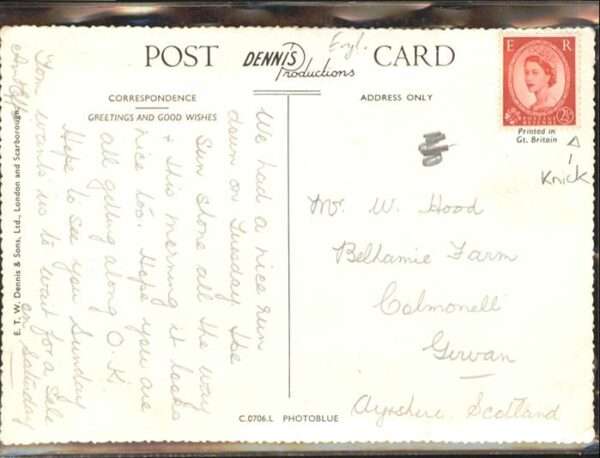 POST DENNIS Productions CARD
Engl.
CORRESPONDENCE
GREETINGS AND GOOD WISHES
ADDRESS ONLY
E R
POSTAGE REVENUE
2½D
Printed in
Gt. Britain
Knick
We had a nice run
down on Tuesday. The
Sun shone all the way
+ this morning it looks
nice too. Hope you are
all getting along O.K.
Hope to see you Sunday
Tom wants us to wait for a Sale
on Saturday
Mr. W. Hood
Bellamie Farm
Colmonell
Girvan
Ayrshire. Scotland
E. T. W. Dennis & Sons, Ltd., London and Scarborough.
C.0706.L PHOTOBLUE